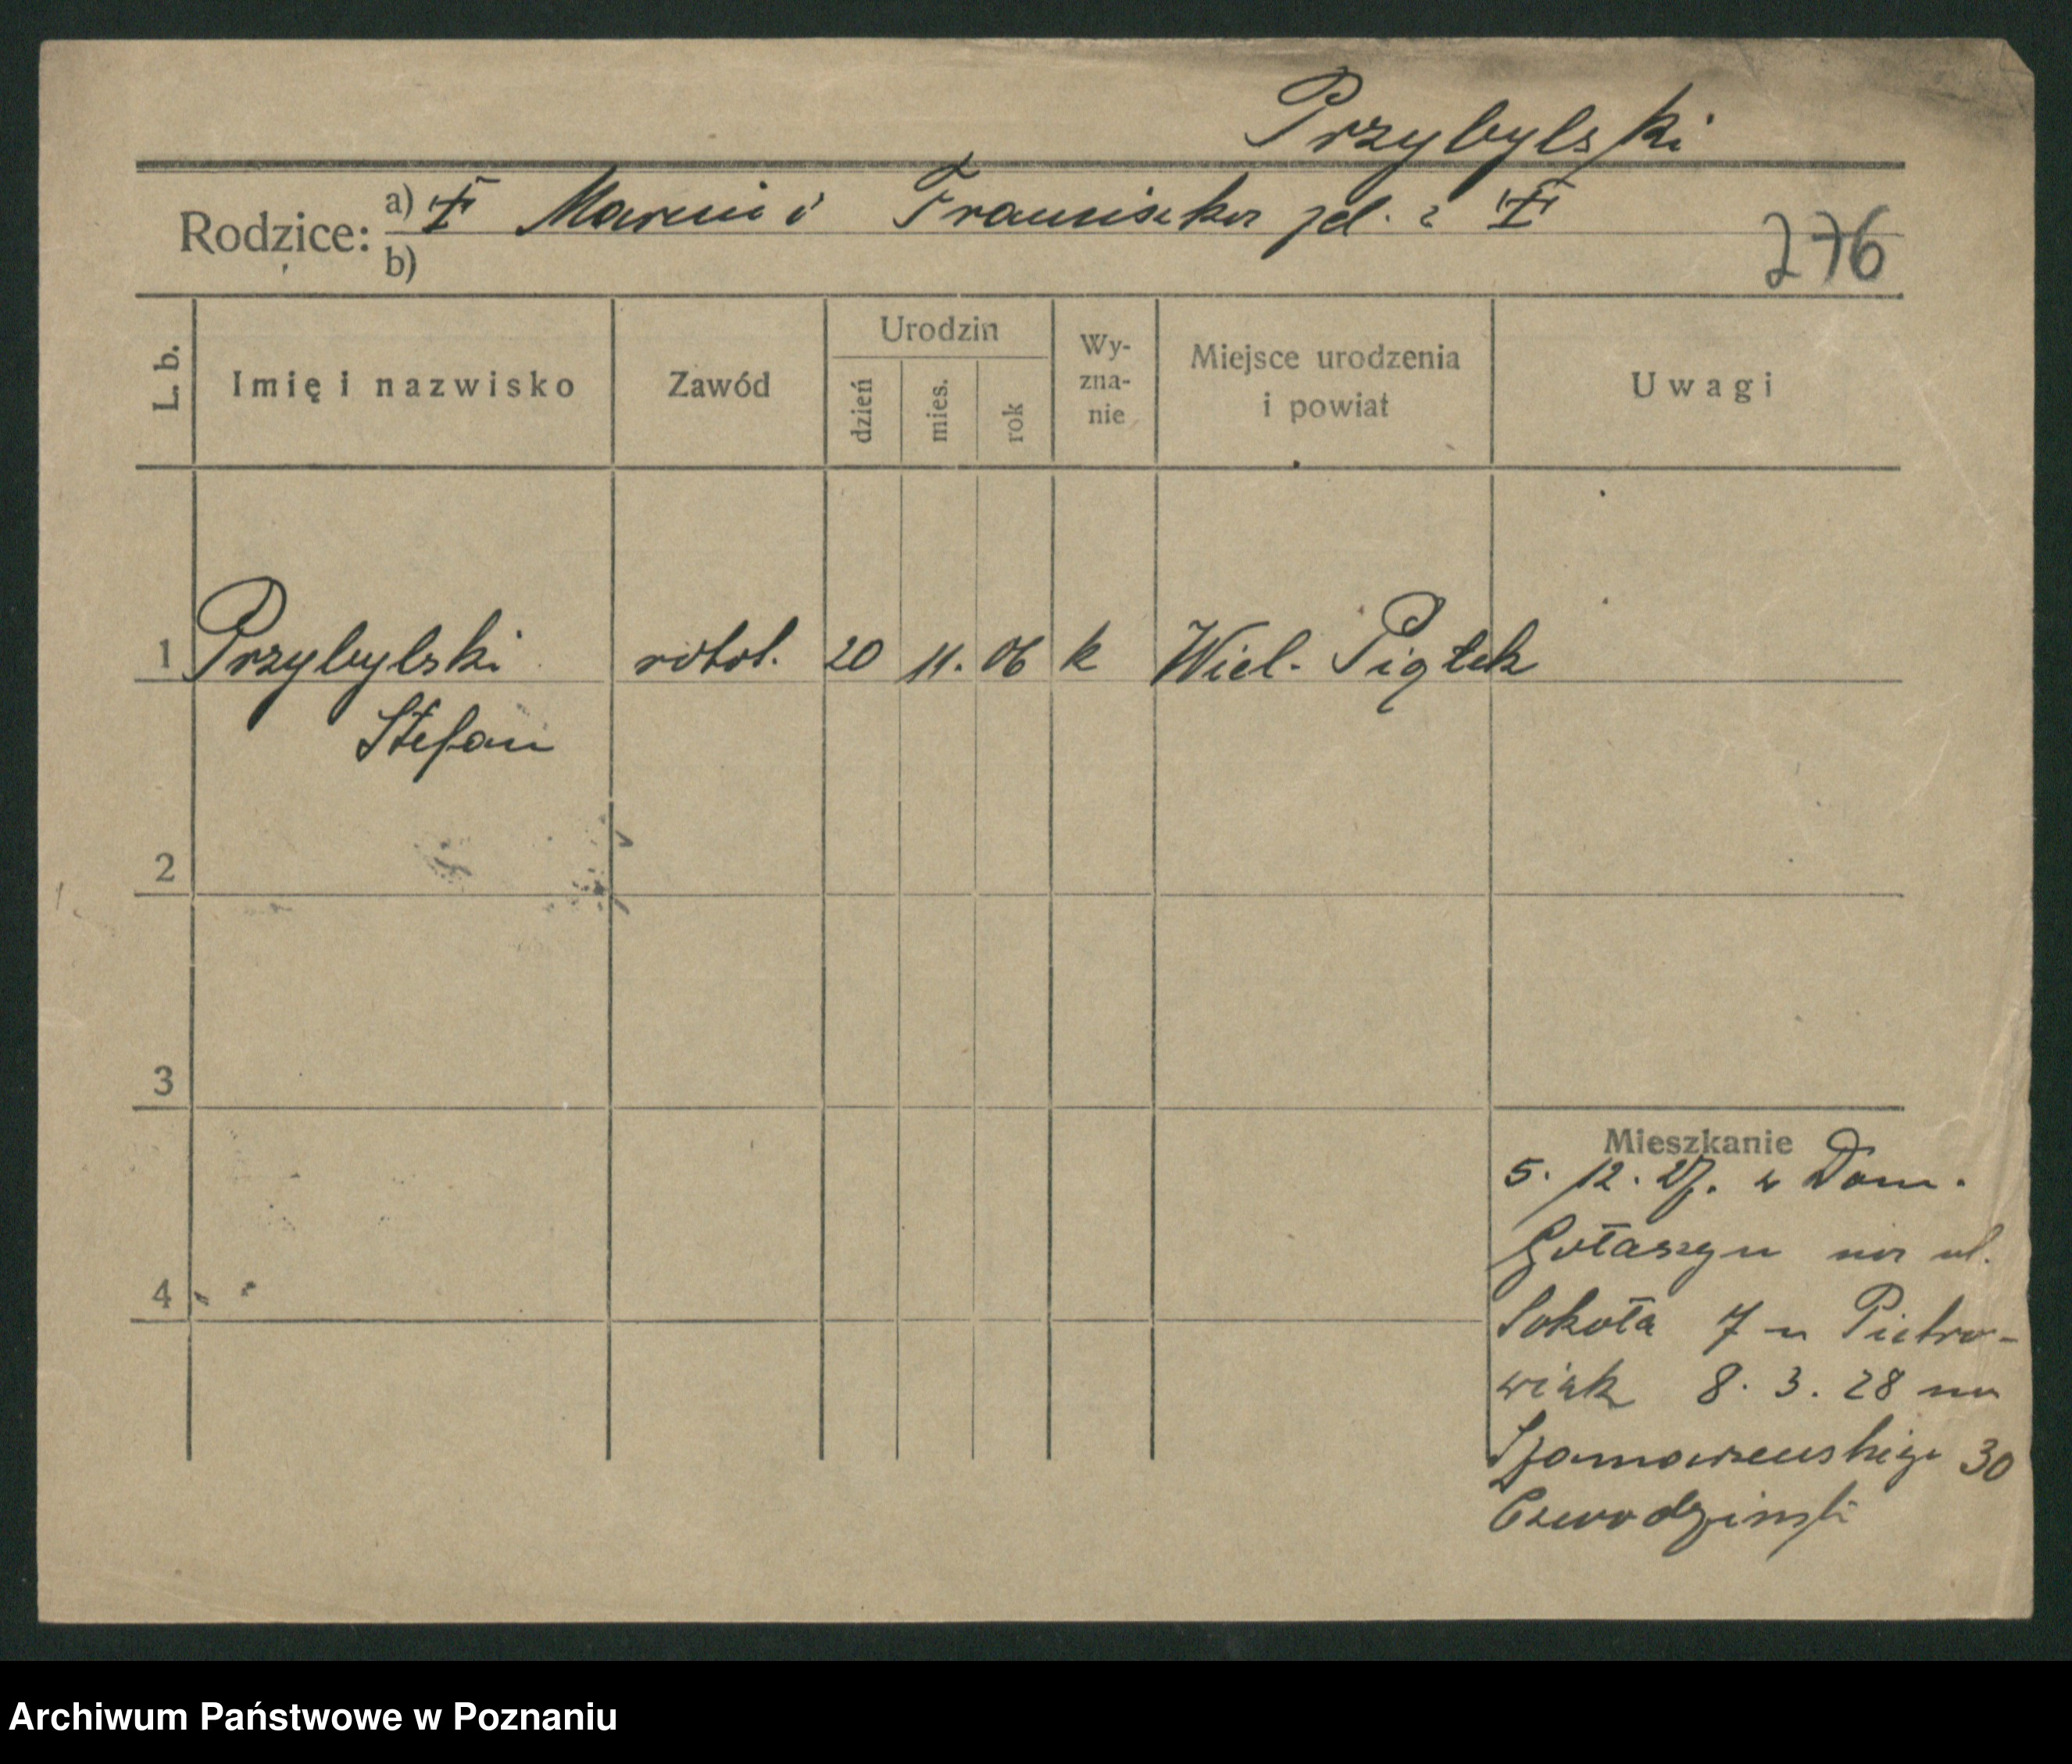 Przybylski
Rodzice: a) Marcin i Franciszka
b)
276
L. b.
Imię i nazwisko
Zawód
Urodzin
dzień
mies.
rok
Wy-
zna-
nie
Miejsce urodzenia
i powiat
Uwagi
1 Przybylski robot. 20 11. 06 k Wiel. Piątek
Stefan
2
3
4
Mieszkanie
5. 12. 27. z Dom.
Gołaszyn na ul.
Sokoła 7 u Pietro-
wiak 8. 3. 28 na
30
Archiwum Państwowe w Poznaniu